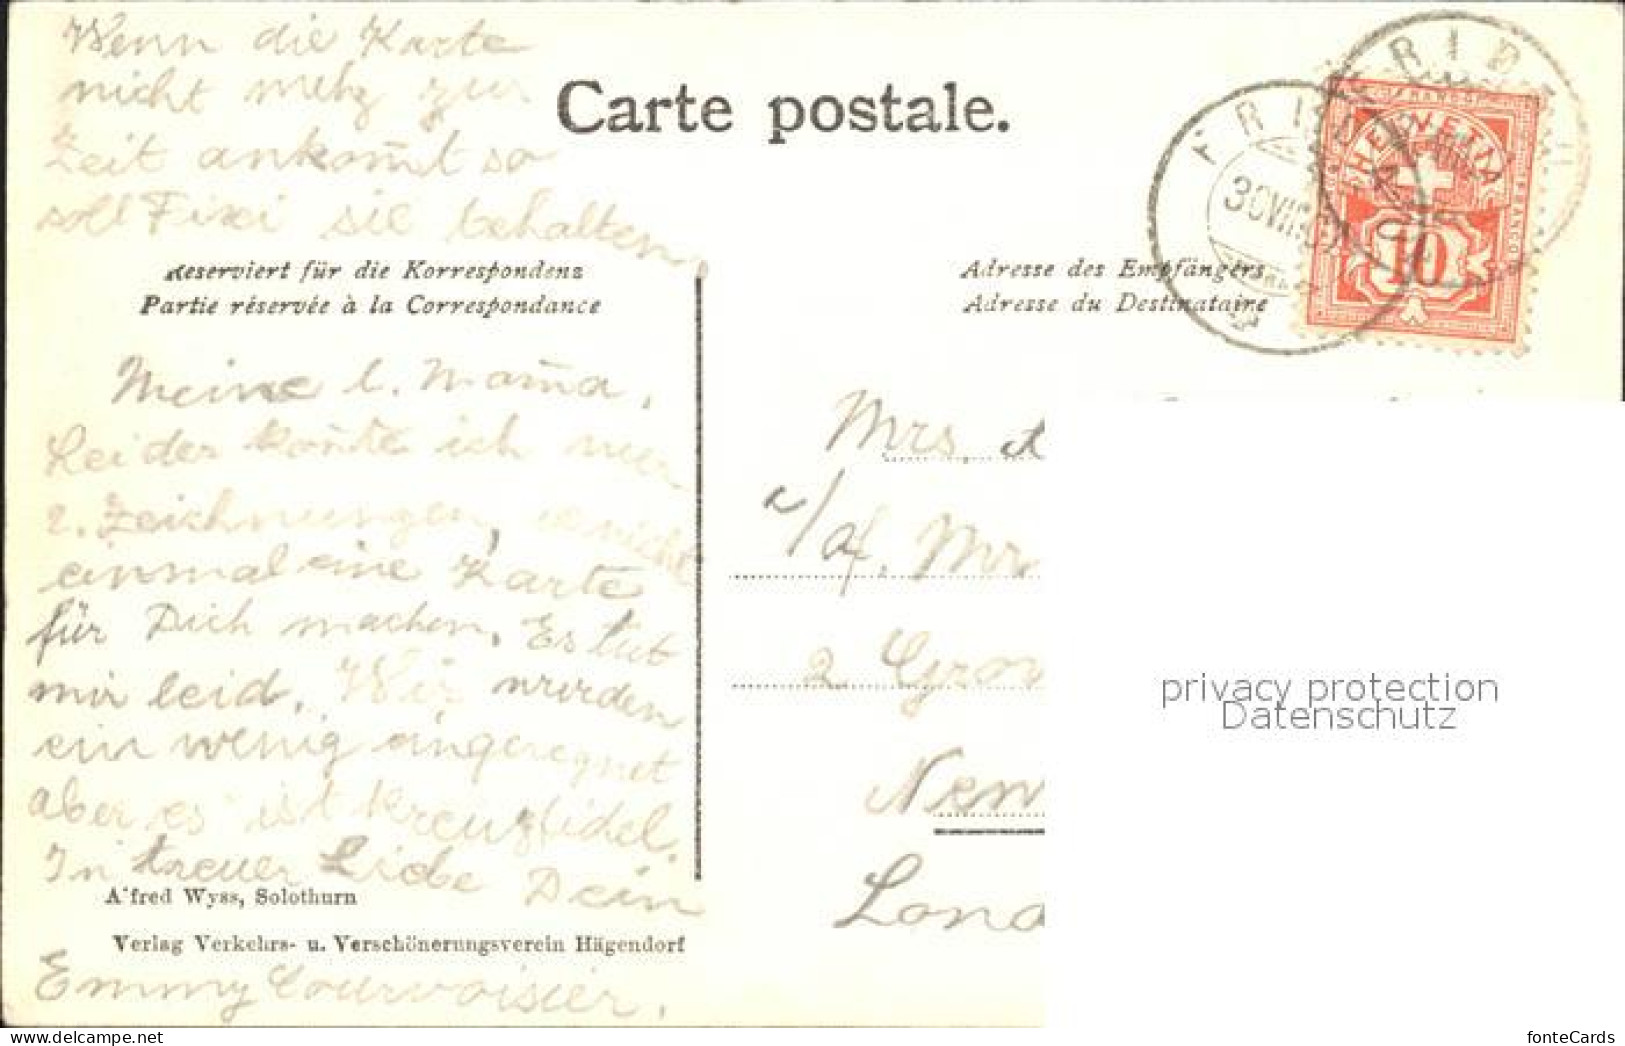 Wenn die Karte
nicht mehr zur
Zeit ankom̄t so
soll Fixi sie behalten.
Carte postale.
Reserviert für die Korrespondenz
Partie réservée à la Correspondance
Meine l. Mam̄a,
Leider kon̄te ich nur
2. Zeichnungen, nicht
einmal eine Karte
für Dich machen. Es tut
mir leid. Wir wurden
ein wenig eingeregnet
aber es ist kreuzfidel.
In treuer Liebe Dein
Alfred Wyss, Solothurn
Verlag Verkehrs- u. Verschönerungsverein Hägendorf
Emmy Courvoisier.
Adresse des Empfängers
Adresse du Destinataire
HELVETIA
FRANCO
10
30 VII
Mrs.
Mrs
2 Grov
New
Lond
privacy protection
Datenschutz
fonteCards